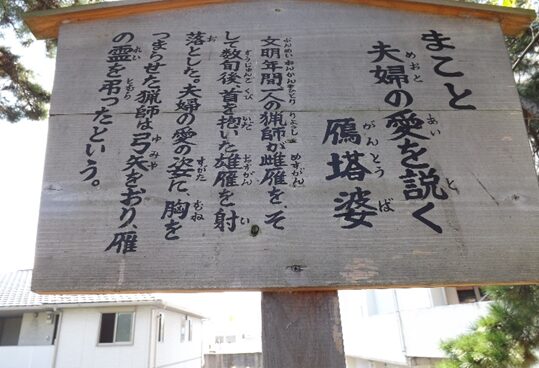 まこと
夫婦の愛を説く
雁塔婆
文明年間一人の猟師が雌雁を、そ
して数旬後、首を抱いた雄雁を射
落とした。夫婦の愛の姿に、胸を
つまらせた猟師は弓矢をおり、雁
の霊を弔ったという。